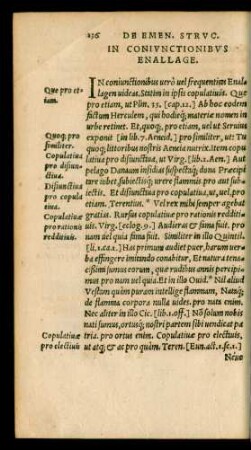 236 DE EMEN. STRVC.
IN CONIVNCTIONIBVS
ENALLAGE.
IN coniunctionibus uerò uel frequentem Enal
Que pro et-
iam.
lagen uideas. Statim in ipsis copulatiuis. Que
pro etiam, ut Plin. 35. [cap.12.] Ab hoc eodem
factum Herculem, qui hodieq; materiæ nomen in
urbe retinet. Et, quoq;, pro etiam, uel ut Seruius
Quoq; pro
similiter.
exponit [in lib. 7. Aeneid.] pro similiter, ut: Tu
quoq; littoribus nostris Aeneia nutrix. Item copu
Copulatiua
pro disiun-
ctiua.
latiua pro disiunctiua, ut Virg. [lib. 2. Aen.] Aut
pelago Danaum insidias suspectaq; dona Præcipi
tare iubet subiectisq; urere flammis pro aut subie
Disiunctiua
pro copula
tiua.
ctis. Et disiunctiua pro copulatiua, ut, uel, pro
etiam. Terentius. * Vel rex mihi semper agebat
Copulatiuæ
pro rationis
redditiuis.
gratias. Rursus copulatiuæ pro rationis redditi-
uis. Virg. [eclog. 9.] Audieras & fama fuit, pro
nam uel quia fama fuit. Similiter in illo Quintil.
[li. 1. ca. 1.] Has primum audiet puer, harum uer
ba effingere imitando conabitur, Et natura tena-
cissimi sumus eorum, quæ rudibus annis percipi-
mus pro nam uel quia. Et in illo Ouid. * Nil aliud
Vestam quàm puram intellige flammam, Nataq;
de flamma corpora nulla uides. pro nats enim.
Nec aliter in illo Cic. [lib. 1. off.] Nō solum nobis
nati sumus, ortusq; nostri partem sibi uendicat pa
Copulatiuæ
pro electiuis
tria. pro ortus enim. Copulatiuæ pro electiuis,
ut atq; & ac pro quàm. Teren. [Eun. act. 1. sc. 1.]
Néue